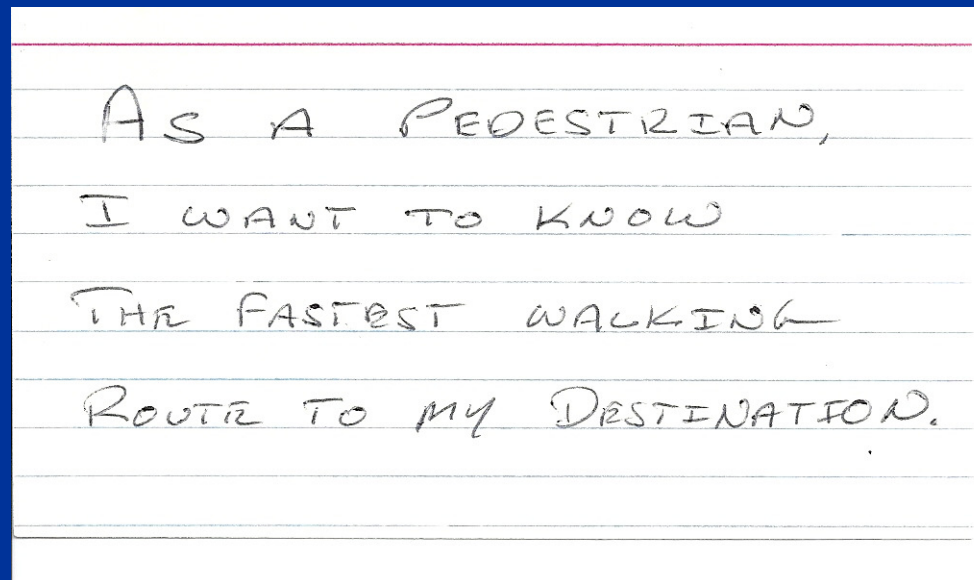 As A PEDESTRIAN,
I WANT TO KNOW
THE FASTEST WALKING
ROUTE TO MY DESTINATION.